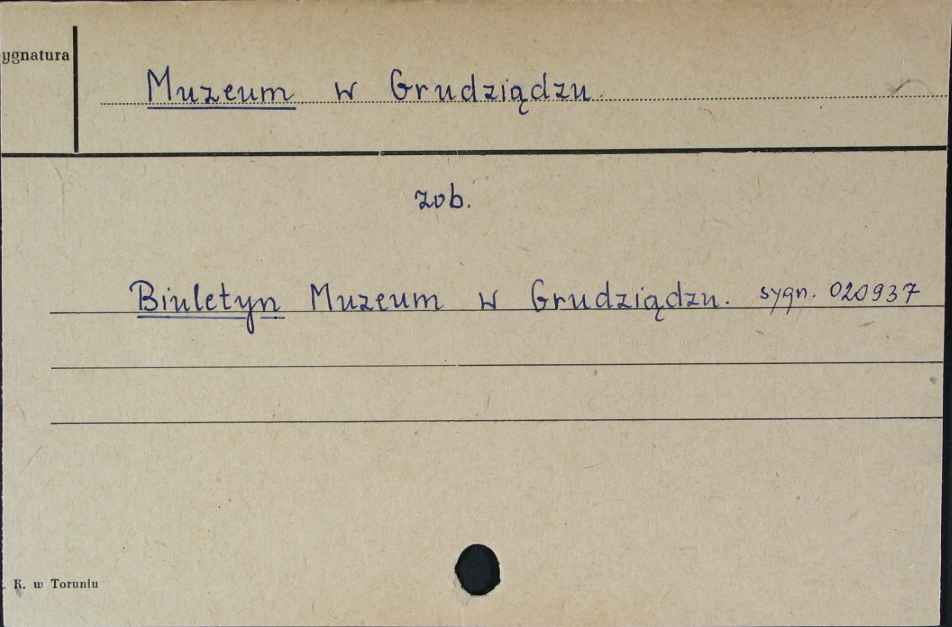 ygnatura
Muzeum w Grudziądzu.
zob.
Biuletyn Muzeum w Grudziądzu. sygn. 020937
. K. w Toruniu